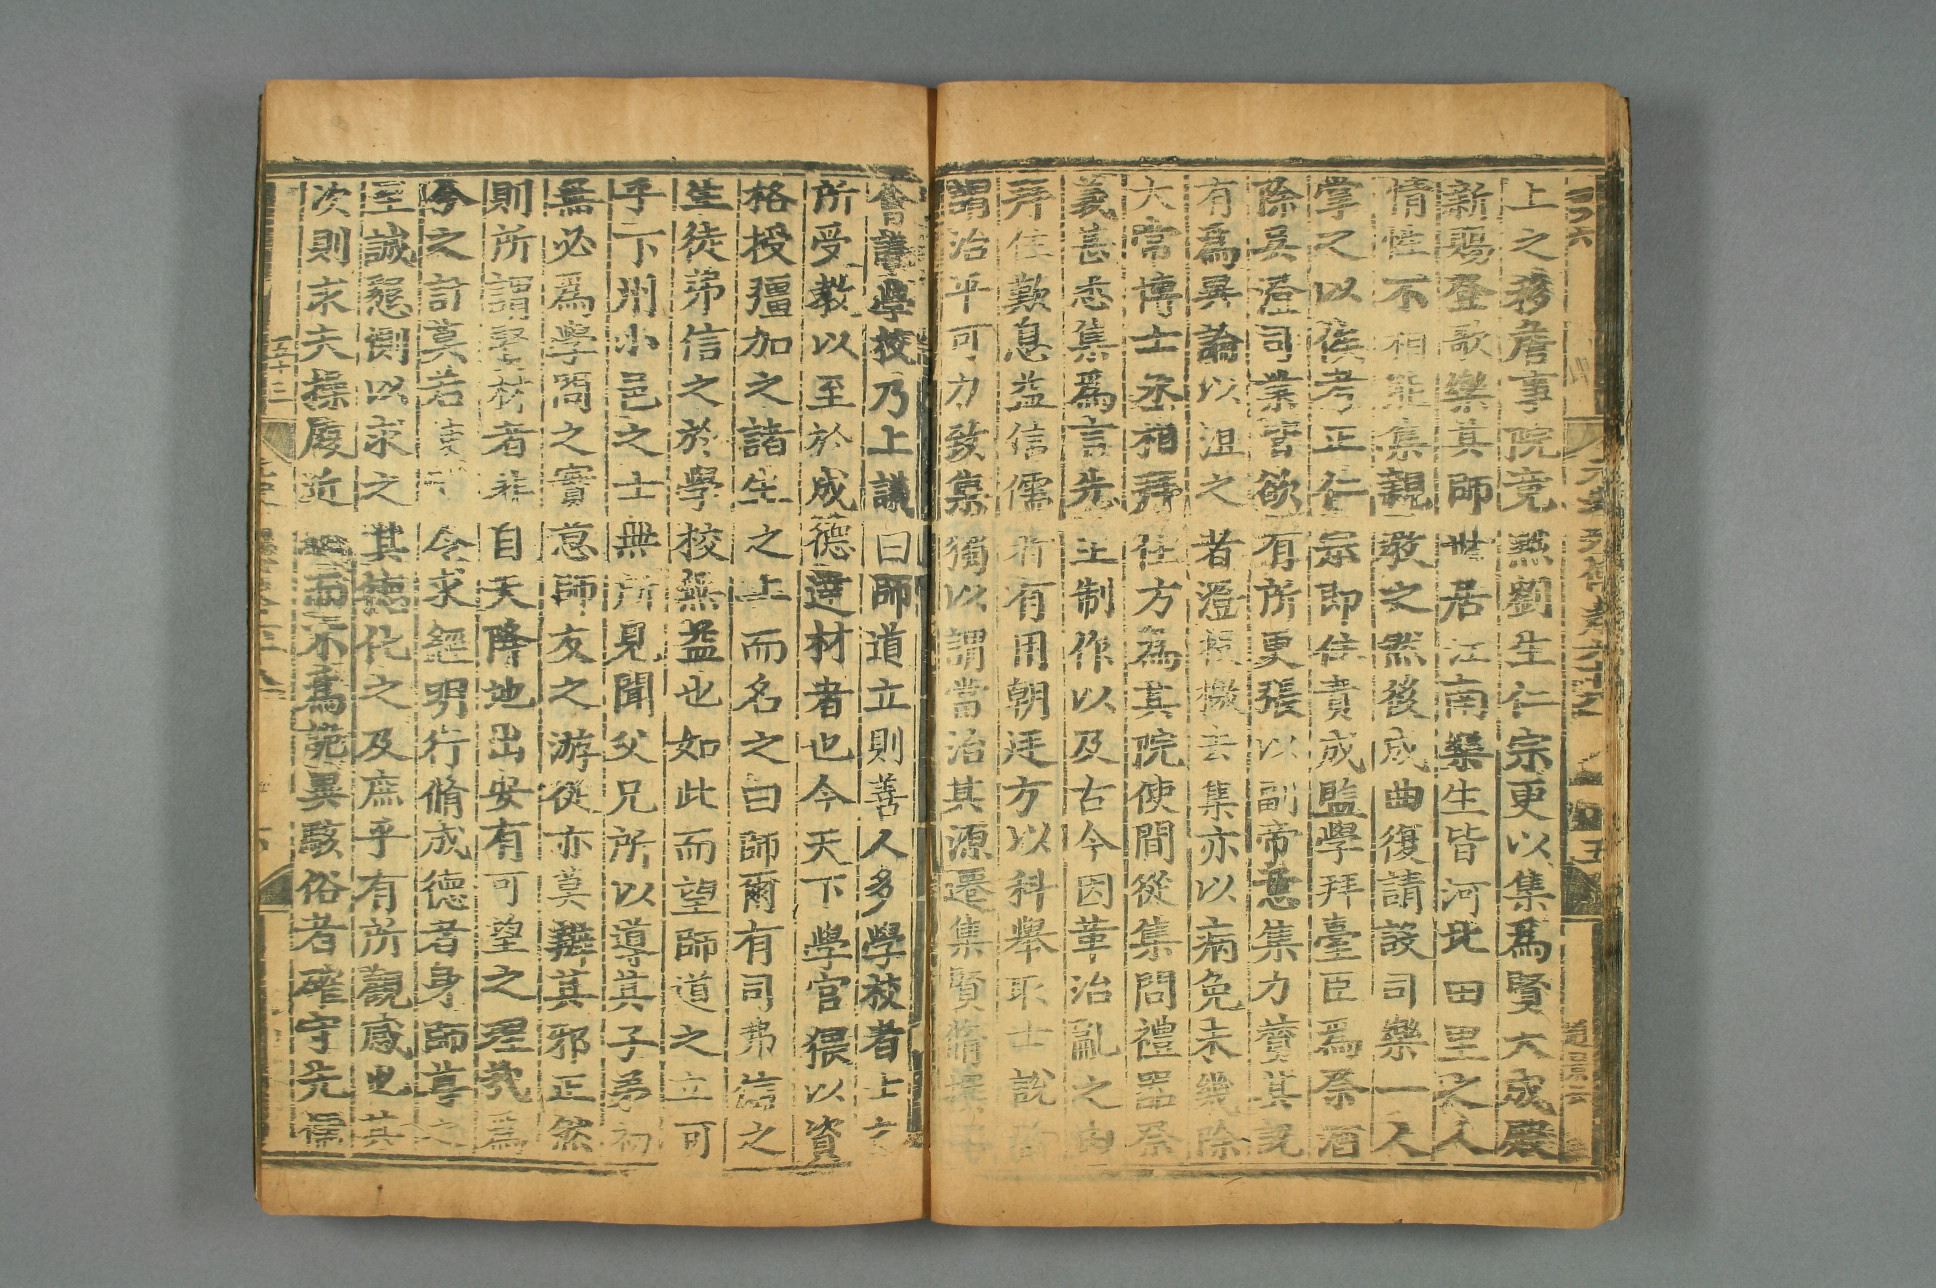 上之移詹事院竟黜劉生仁宗更以集爲賢大成殿
新賜登歌樂其師世居江南樂生皆河北田里之人
情性不相能集親敎之然後成曲復請設司樂一人
掌之以俟考正仁宗即位責成監學拜臺臣爲祭酒
除吳澄司業皆欲有所更張以副帝意集力贊其說
有爲異論以沮之者澄投檄去集亦以病免未幾除
大常博士丞相拜住方爲其院使間從集問禮器祭
義甚悉集爲言先王制作以及古今因革治亂之由
拜住歎息益信儒者有用朝廷方以科舉取士說者
謂治平可力致集獨以謂當治其源遷集賢脩撰因
會議學校乃上議曰師道立則善人多學校者士之
所受教以至於成德達材者也今天下學官猥以資
格授彊加之諸生之上而名之曰師爾有司弗信之
生徒弟信之於學校無益也如此而望師道之立可
乎下州小邑之士無所見聞父兄所以導其子弟初
無必爲學問之實意師友之游從亦莫辨其邪正然
則所謂賢材者非自天降地出安有可望之理哉爲
今之計莫若使守令求經明行脩成德者身師尊之
至誠懇惻以求之其德化之及庶乎有所觀感也其
次則求夫操履近正而不爲詭異駭俗者確守先儒